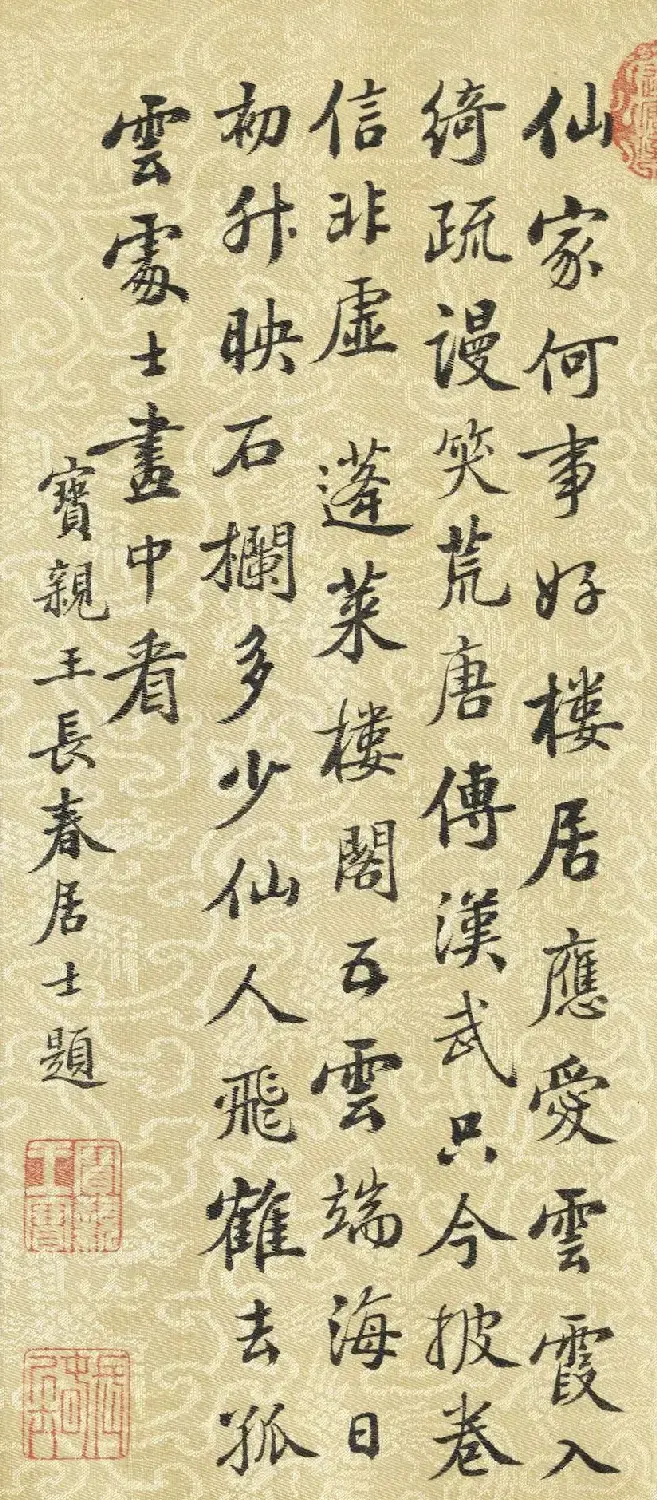 仙家何事好樓居應愛雲霞入
綺疏謾笑荒唐傳漢武只今披卷
信非虛 蓬萊樓閣五雲端海日
初升映石欄多少仙人飛鶴去孤
雲處士畫中看
寶親王長春居士題